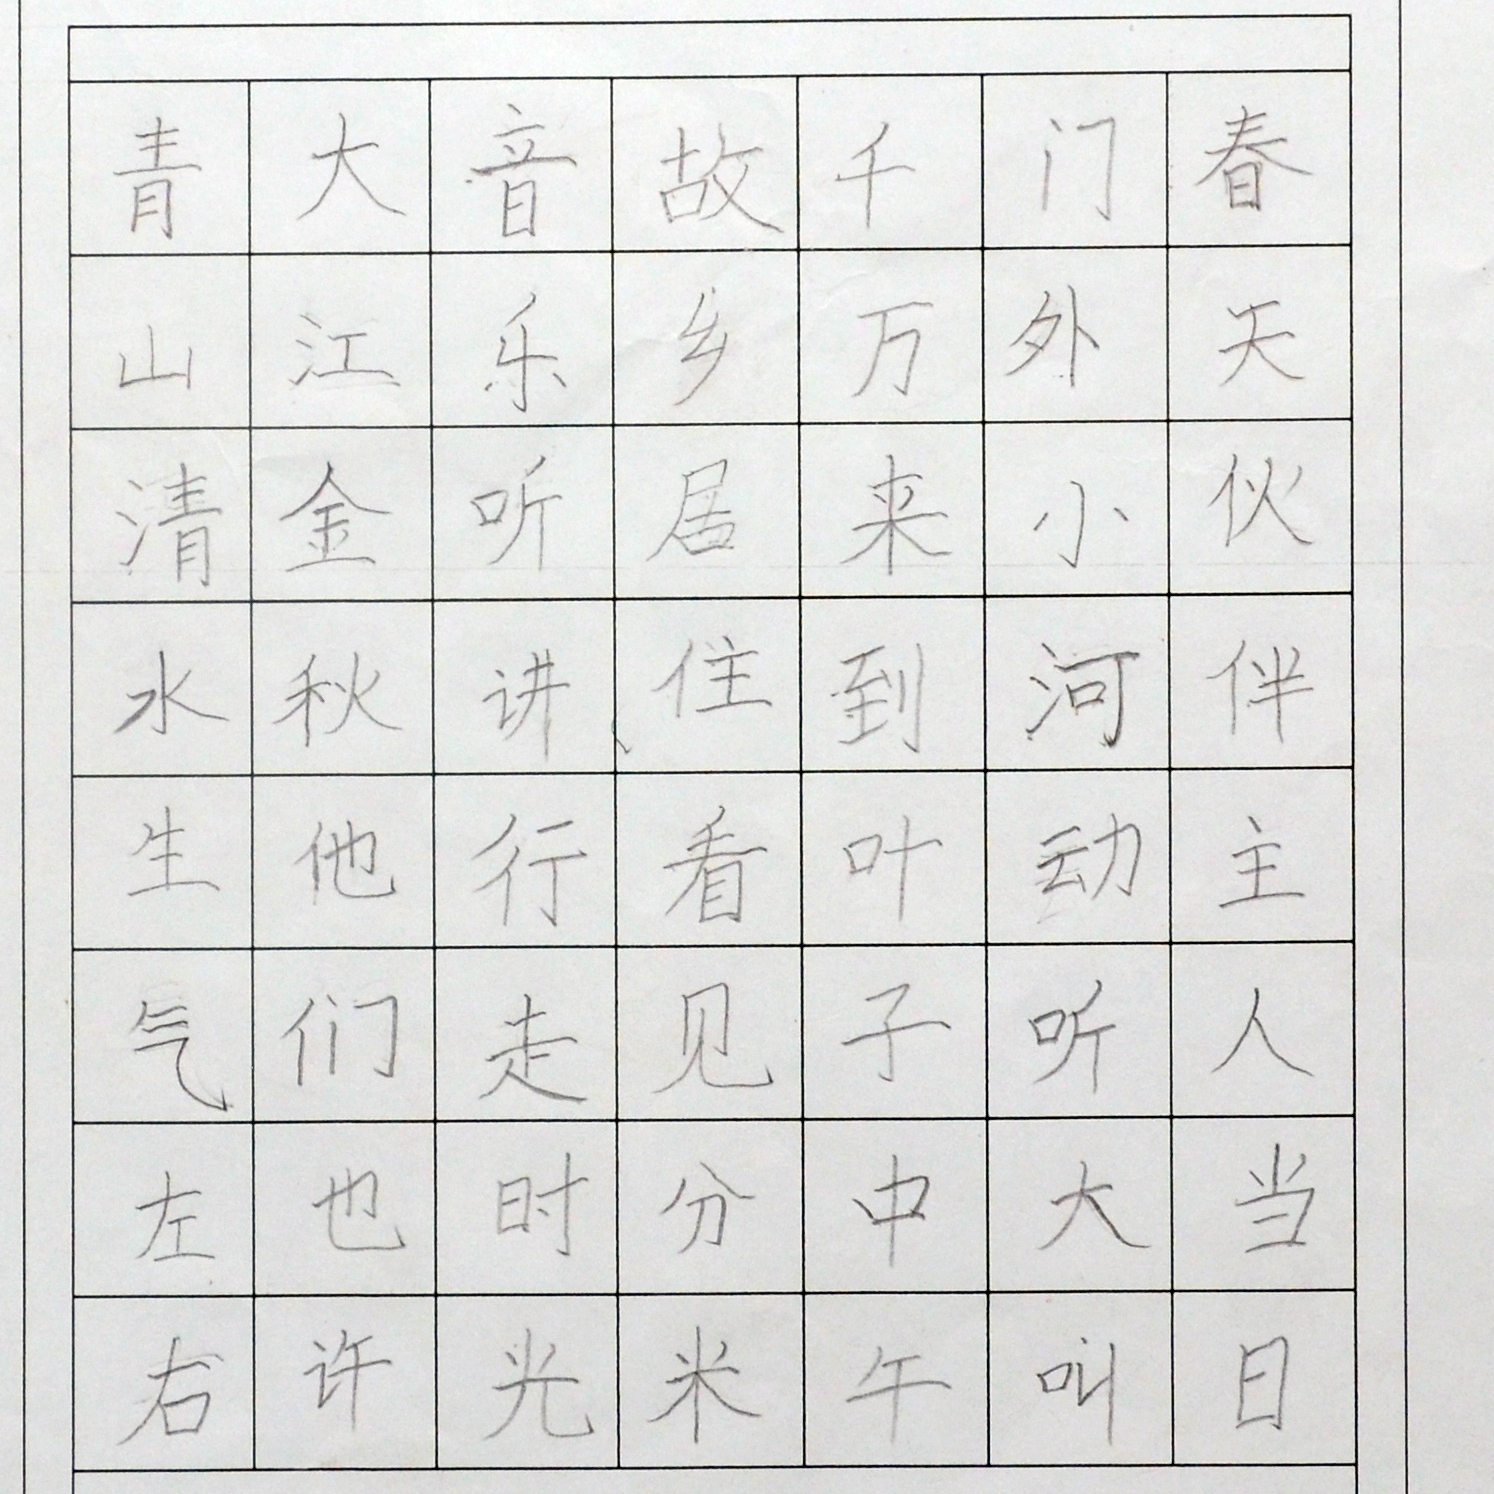 春天伙伴主人当日
门外小河动听大叫
千万来到叶子中午
故乡居住看见分米
音乐听讲行走时光
大江金秋他们也许
青山清水生气左右